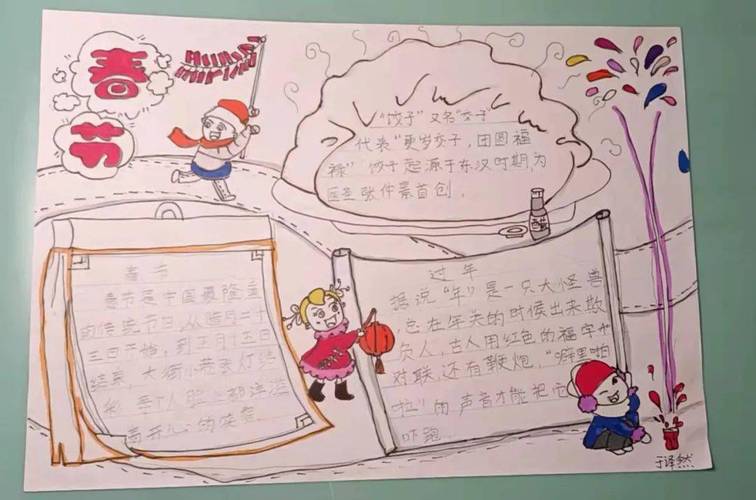 春节
"饺子"又名"交子"
代表"更岁交子,团圆福
禄"饺子起源于东汉时期,为
医圣张仲景首创。
醋
春节
春节是中国最隆重
的传统节日,从腊月二十
三日开始,到正月十五日
结束,大街小巷张灯结
彩,每个人脸上都洋溢
着开心的笑容
过年
据说"年"是一只大怪兽
总在年关的时候出来欺
负人,古人用红色的福字和
对联,还有鞭炮,"噼里啪
啦"的声音才能把它
吓跑.
于泽然